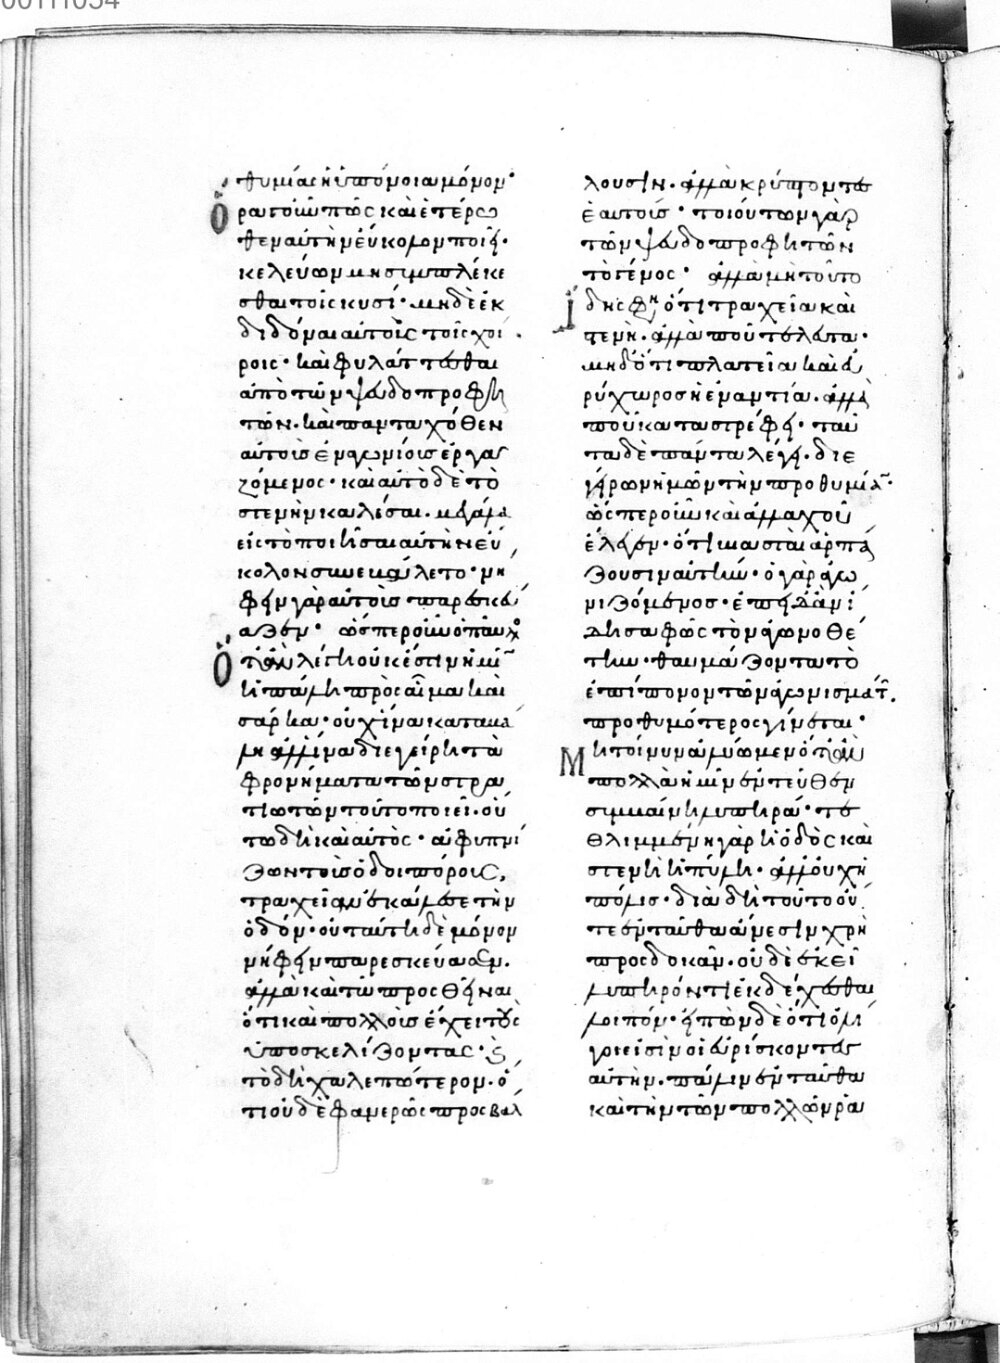 00111034
θυμίας ἡ ὑπόνοια μόνον·
ρα γοῦν πῶς καὶ ἑτέρω
θεν αὐτὴν εὔκολον ποιεῖ·
κελεύων μὴ συμπλέκε
σθαι τοῖς κυσί· μηδὲ ἐκ
διδόναι αὐτοὺς τοῖς χοί
ροις· καὶ φυλάττεσθαι
ἀπὸ τῶν ψευδοπροφη
τῶν· καὶ πανταχόθεν
αὐτοῖς ἐναγωνίοις ἐργα
ζόμενος· καὶ αὐτὸ δὲ τὸ
στενὴν καλέσαι· μεγάλα
εἰς τὸ ποιῆσαι αὐτὴν εὔ
κολον συνεβάλετο· νή
φειν γὰρ αὐτοὺς παρεσκεύ
αζεν· ὥσπερ οὖν ὁ παῦλος
Ὅταν λέγῃ οὐκ ἔστιν ἡμῖν
ἡ πάλη πρὸς αἷμα καὶ
σάρκα· οὐχ ἵνα καταβά
λῃ ἀλλ' ἵνα διεγείρῃ τὰ
φρονήματα τῶν στρα
τιωτῶν τοῦτο ποιεῖ· οὕ
τω δὴ καὶ αὐτὸς· ἀφυπνί
ζων τοὺς ὁδοιπόρους,
τραχεῖαν ἐκάλεσε τὴν
ὁδόν· οὐ ταύτῃ δὲ μόνον
νήφειν παρεσκεύασεν·
ἀλλὰ καὶ τῶ προσθεῖναι
ὅτι καὶ πολλοὺς ἔχει τοὺς
ὑποσκελίζοντας· καὶ
τὸ δὴ χαλεπώτερον· ὅ
τι οὐδὲ φανερῶς προσβάλ
λουσιν· ἀλλὰ κρύπτοντες
ἑαυτούς· τοιοῦτον γὰρ
τῶν ψευδοπροφητῶν
τὸ γένος· ἀλλὰ μὴ τοῦτο
ἴδῃς φησὶν ὅτι τραχεῖα καὶ
στενή· ἀλλὰ ποῦ τελευτᾶ·
μηδ' ὅτι πλατεῖα καὶ εὐ
ρύχωρος ἡ ἐναντία· ἀλλὰ
ποῦ καταστρέφει· ταῦ
τα δὲ πάντα λέγει· διε
γείρων ἡμῶν τὴν προθυμίαν·
ὥσπερ οὖν καὶ ἀλλαχοῦ
ἔλεγεν· ὅτι βιασταὶ ἁρπά
ζουσιν αὐτήν· ὁ γὰρ ἀγω
νιζόμενος· ἐπειδὰν ἴ
δῃ σαφῶς τὸν ἀγωνοθέ
την· θαυμάζοντα τὸ
ἐπίπονον τῶν ἀγωνισμάτων·
προθυμότερος γίνεται·
Μὴ τοίνυν ἀλύωμεν ὅταν
πολλὰ ἡμῖν ἐντεῦθεν
συμβαίνῃ λυπηρά· τε
θλιμμένη γὰρ ἡ ὁδὸς καὶ
στενὴ ἡ πύλη· ἀλλ' οὐχ ἡ
πόλις· διὰ δὴ τοῦτο οὔ
τε ἐνταῦθα ἄνεσιν χρὴ
προσδοκᾶν· οὐδὲ ἐκεῖ
λυπηρόν τι ἐκδέχεσθαι
λοιπόν· εἰπὼν δὲ ὅτι ὀλί
γοι εἰσὶν οἱ εὑρίσκοντες
αὐτήν· πάλιν ἐνταῦθα
καὶ τὴν τῶν πολλῶν ρα